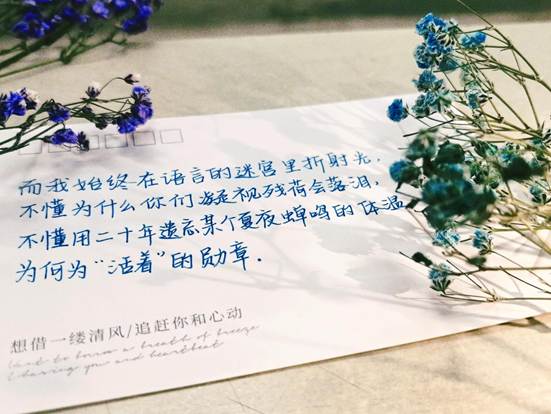 而我始终在语言的迷宫里折射光，
不懂为什么你们凝视残荷会落泪，
不懂用二十年遗忘某个夏夜蝉鸣的体温
为何为“活着”的勋章．
想借一缕清风/追赶你和心动
Want to borrow a breath of breeze
Chasing you and heartbeat